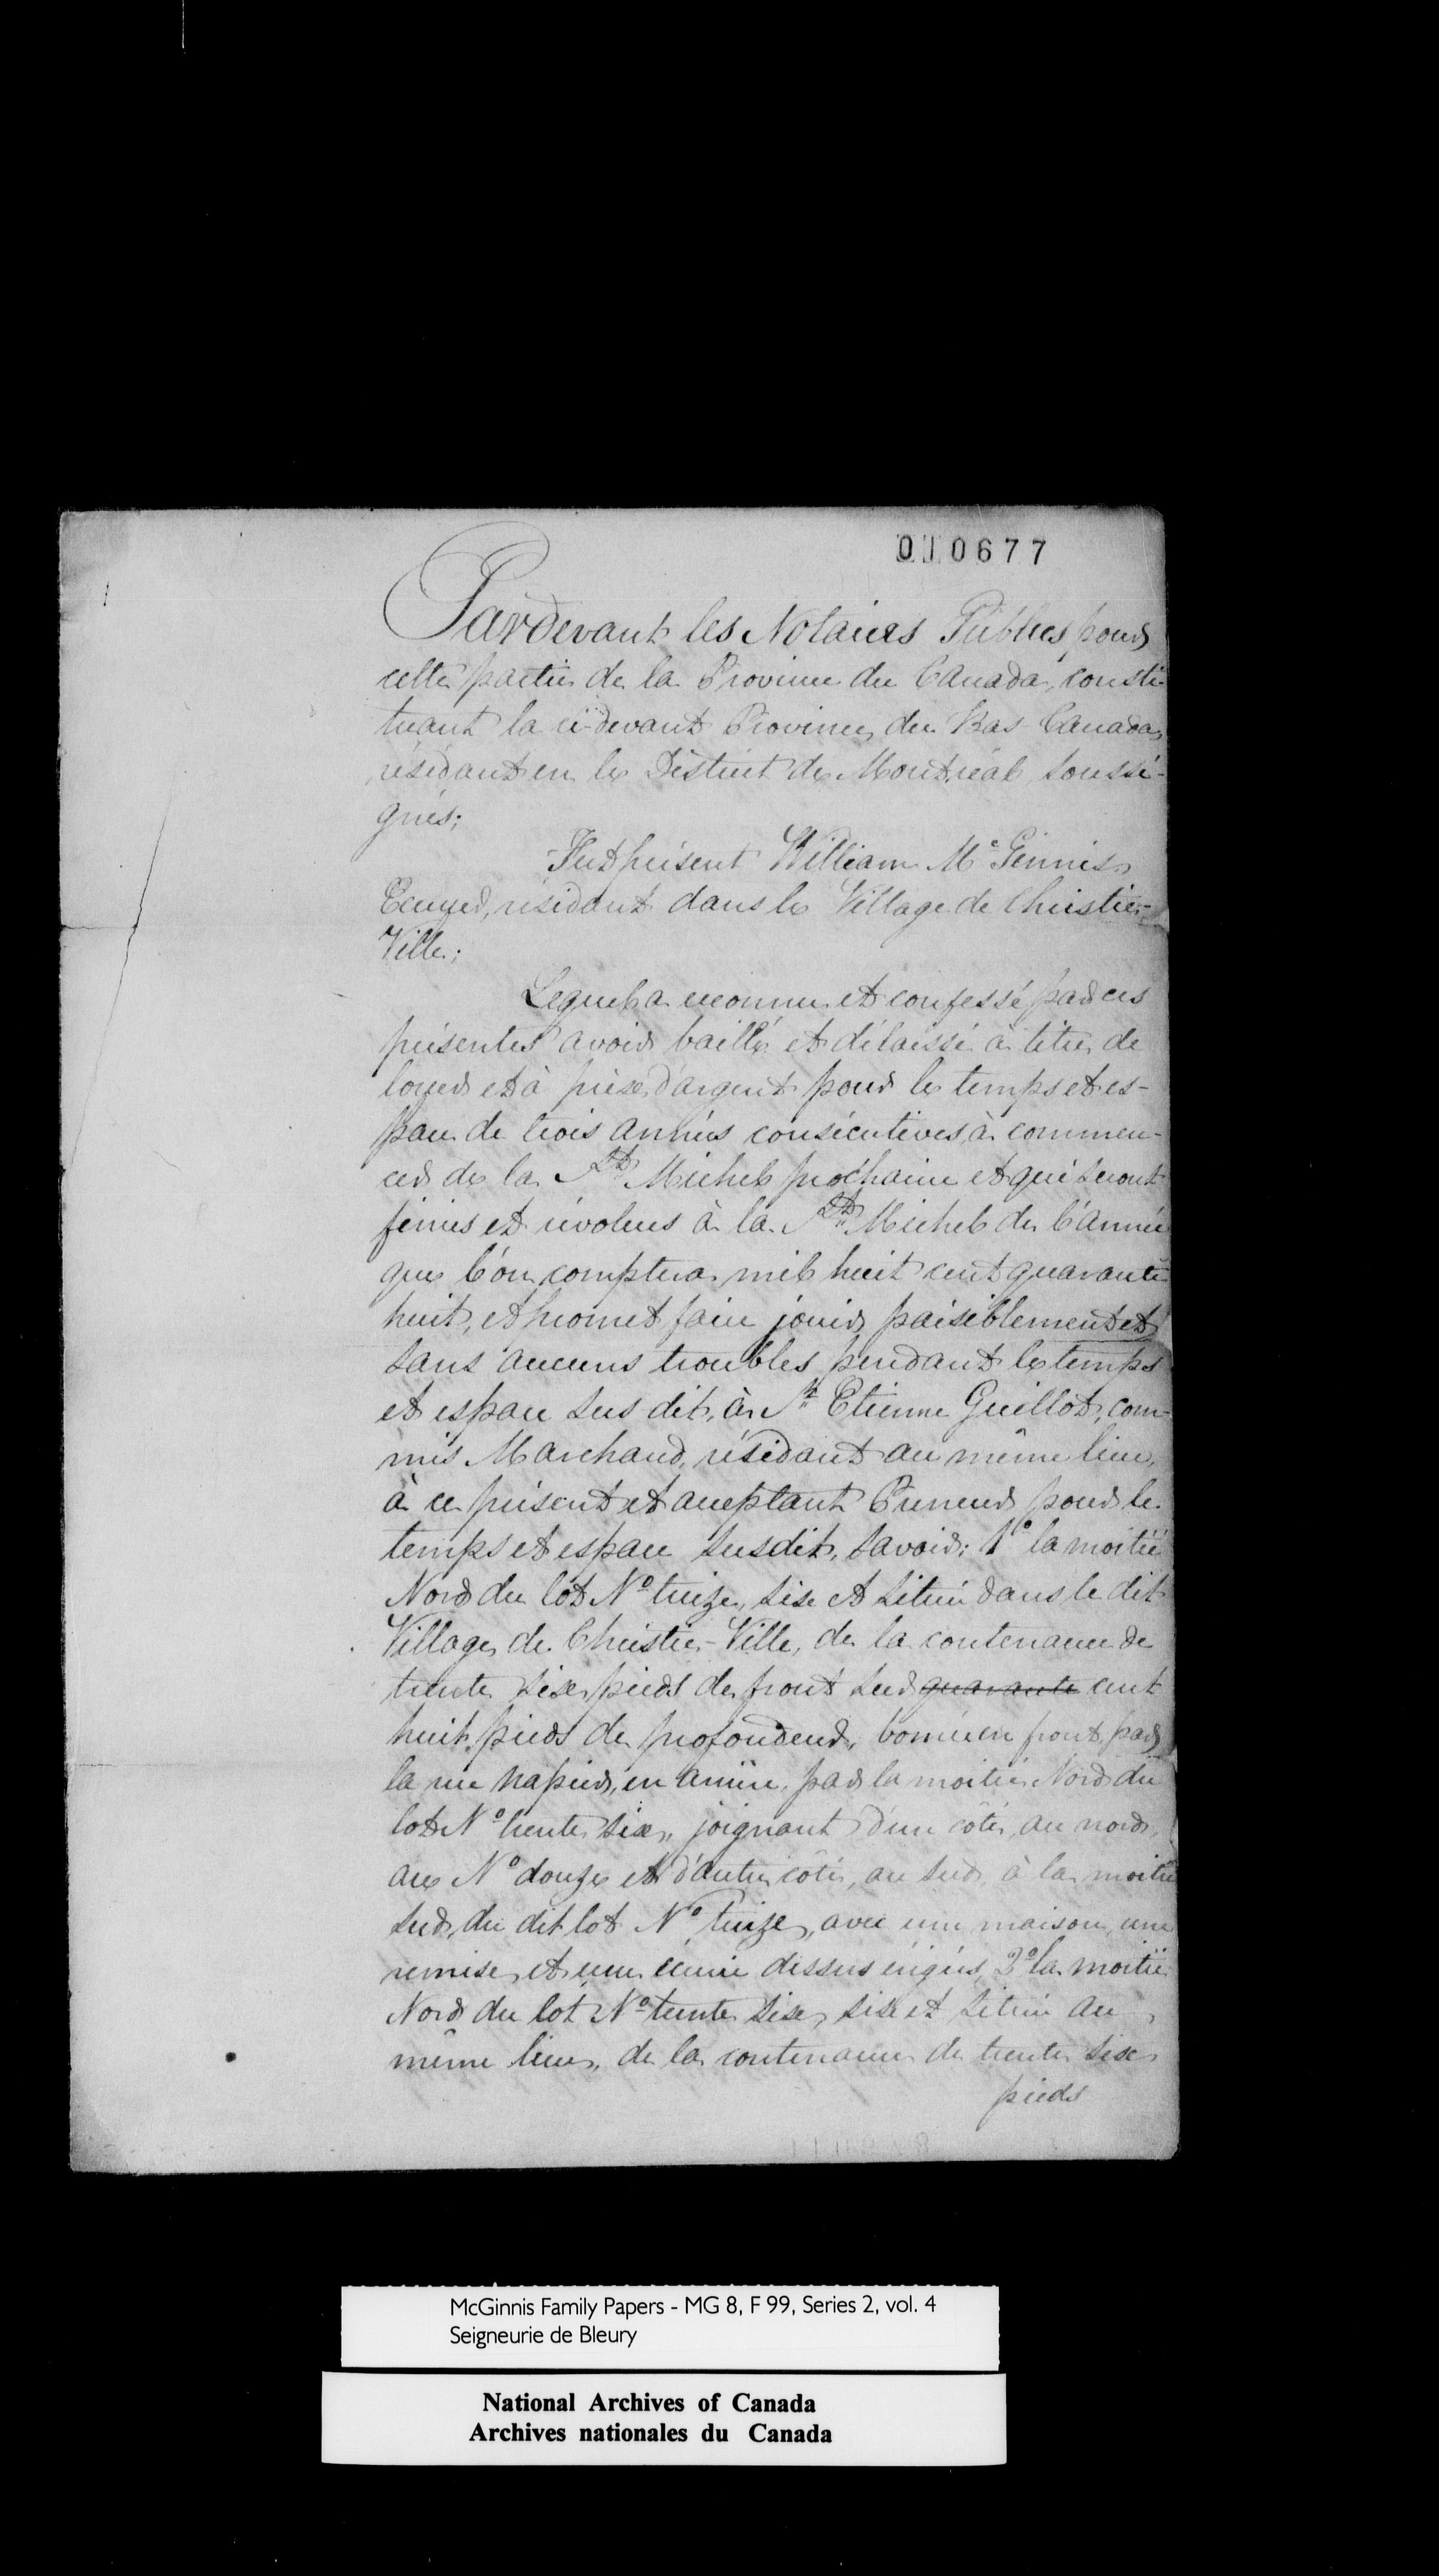 010677
Pardevant les Notaires Publics pour
cette partie de la Province du Canada, consti-
tuant la ci-devant Province du Bas Canada,
résidant en le District de Montréal, soussi-
gnés;
Fut présent William Mc Ginnis
Ecuyer, résidant dans le Village de Christie-
Ville;
Lequel a reconnu et confessé par ces
présentes avoir baillé et délaissé à titre de
loyer et à prix d'argent pour le temps et es-
pace de trois années consécutives, à commen-
cer de la St Michel prochaine et qui seront
finies et révolues à la St Michel de l'année
que l'on comptera mil huit cent quarante
huit, et promet faire jouir paisiblement et
sans aucuns troubles pendant le temps
et espace sus dit, à Sr Etienne Guillot, com-
mis Marchand, résidant au même lieu,
à ce présent et acceptant Preneur pour le
temps et espace susdit, savoir: 1º la moitié
Nord du lot Nº treize, sise et située dans le dit
Village de Christie-Ville, de la contenance de
trente six pieds de front sur quarante cent
huit pieds de profondeur, bornée en front par
la rue Napier, en arrière, par la moitié Nord du
lot Nº trente six, joignant d'un côté, au nord,
au Nº douze et d'autre côté, au sud, à la moitié
sud du dit lot Nº treize, avec une maison, une
remise et une écurie dessus érigés, 2º la moitié
Nord du lot Nº trente six, sise et située au
même lieu, de la contenance de trente six
pieds
McGinnis Family Papers - MG 8, F 99, Series 2, vol. 4
Seigneurie de Bleury
National Archives of Canada
Archives nationales du Canada